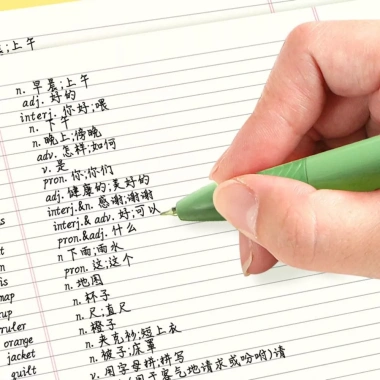 上午
n. 早晨;上午
adj. 好的
interj. 你好;喂
n. 下午
n. 晚上;傍晚
adv. 怎样;如何
v. 是
pron. 你;你们
adj. 健康的;良好的
interj.&n. 感谢;谢谢
interj.& adv. 好;可以
pron.&adj. 什么
n 下雨;雨水
pron. 这;这个
n. 地图
n. 杯子
ruler n. 尺;直尺
orange n. 橙子
jacket n. 夹克衫;短上衣
quilt n. 被子;床罩
v. 用字母拼;拼写
(用于客气地请求或吩咐)请